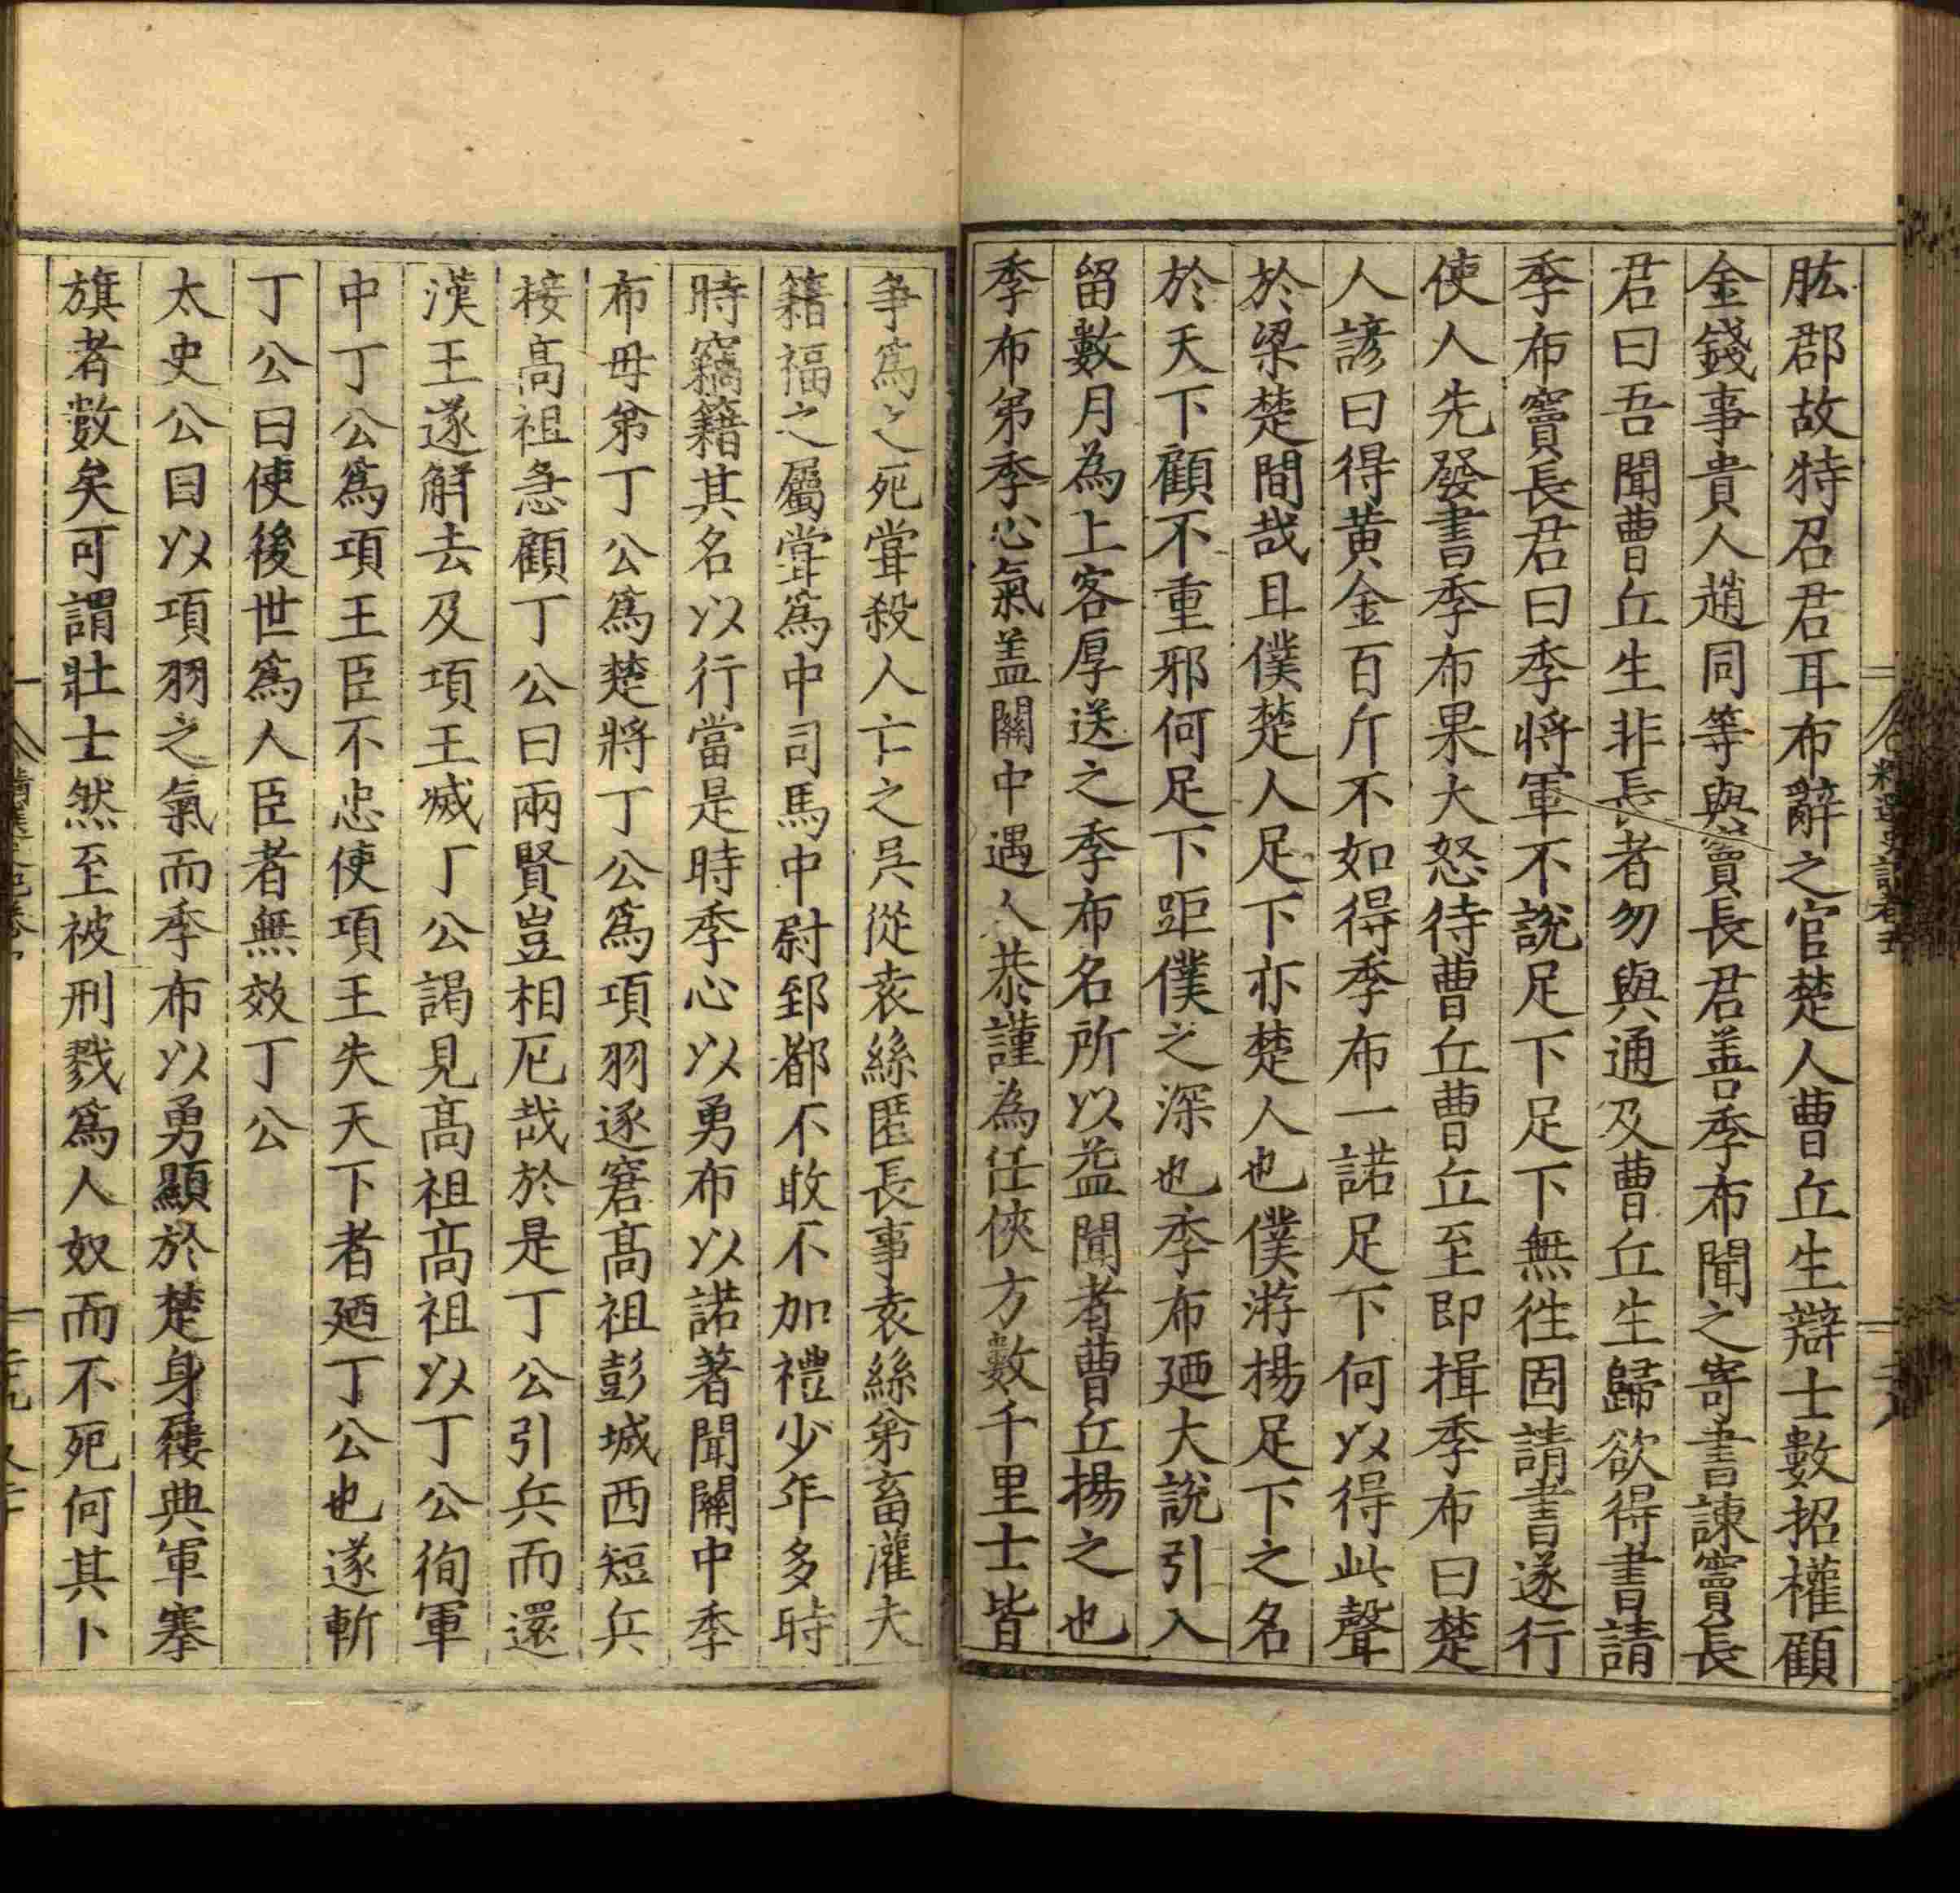 肱郡故特召君耳布辭之官楚人曹丘生辯士數招權顧
金錢事貴人趙同等與竇長君善季布聞之寄書諫竇長
君曰吾聞曹丘生非長者勿與通及曹丘生歸欲得書請
季布竇長君曰季將軍不說足下足下無徃固請書遂行
使人先發書季布果大怒待曹丘曹丘至即揖季布曰楚
人諺曰得黃金百斤不如得季布一諾足下何以得此聲
於梁楚間哉且僕楚人足下亦楚人也僕游揚足下之名
於天下顧不重邪何足下距僕之深也季布廼大說引入
留數月為上客厚送之季布名所以益聞者曹丘揚之也
季布弟季心氣盖關中遇人恭謹為任俠方數千里士皆
爭爲之死甞殺人亡之吳從袁絲匿長事袁絲弟畜灌夫
籍福之屬甞爲中司馬中尉郅都不敢不加禮少年多時
時竊籍其名以行當是時季心以勇布以諾著聞關中季
布母弟丁公爲楚將丁公爲項羽逐窘髙祖彭城西短兵
接髙祖急顧丁公曰兩賢豈相厄哉於是丁公引兵而還
漢王遂解去及項王滅丁公謁見髙祖髙祖以丁公徇軍
中丁公爲項王臣不忠使項王失天下者廼丁公也遂斬
丁公曰使後世爲人臣者無效丁公
太史公曰以項羽之氣而季布以勇顯於楚身屨典軍搴
旗者數矣可謂壯士然至被刑戮爲人奴而不死何其卜
精選史記卷五